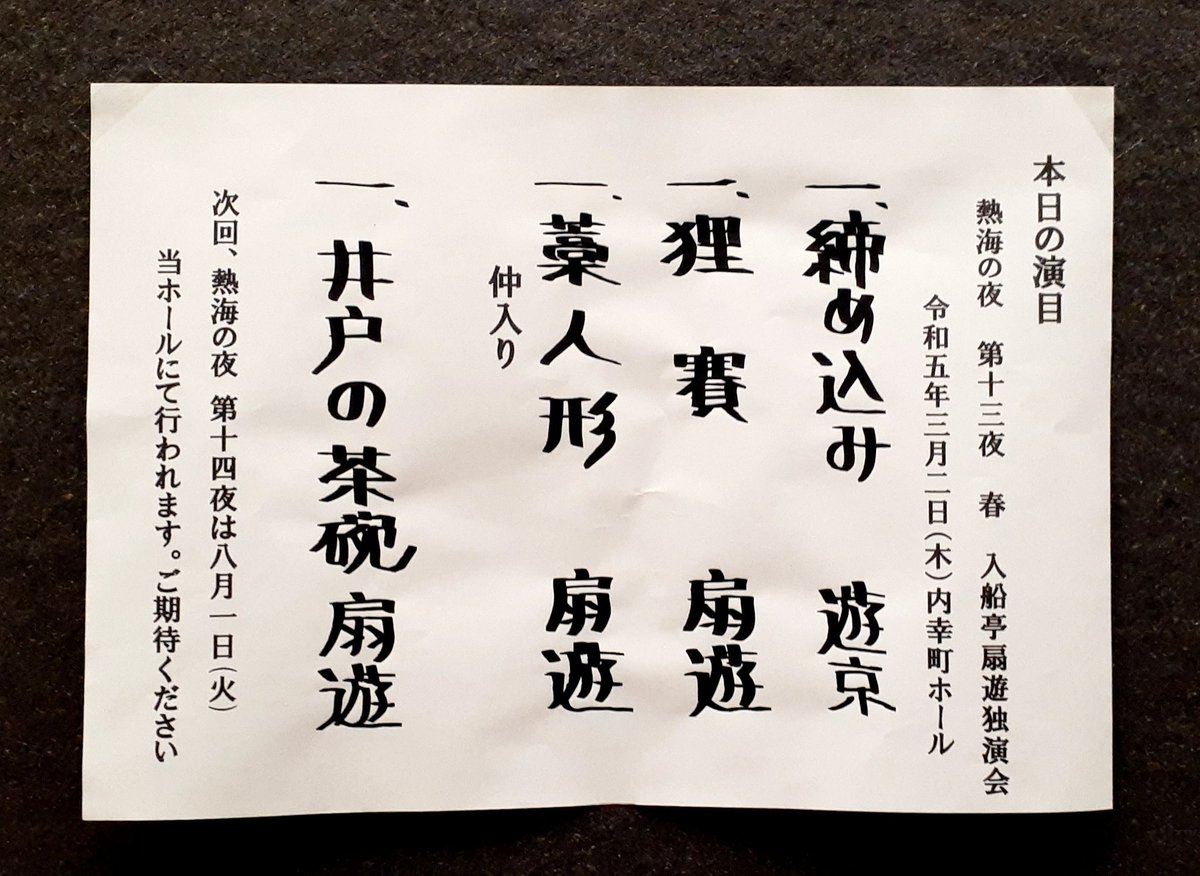 本日の演目
熱海の夜 第十三夜 春 入船亭扇遊独演会
令和五年三月二日(木)内幸町ホール
一、締め込み 遊京
一、狸賽 扇遊
一、藁人形 扇遊
仲入り
一、井戸の茶碗 扇遊
次回、熱海の夜 第十四夜は八月一日(火)
当ホールにて行われます。ご期待ください